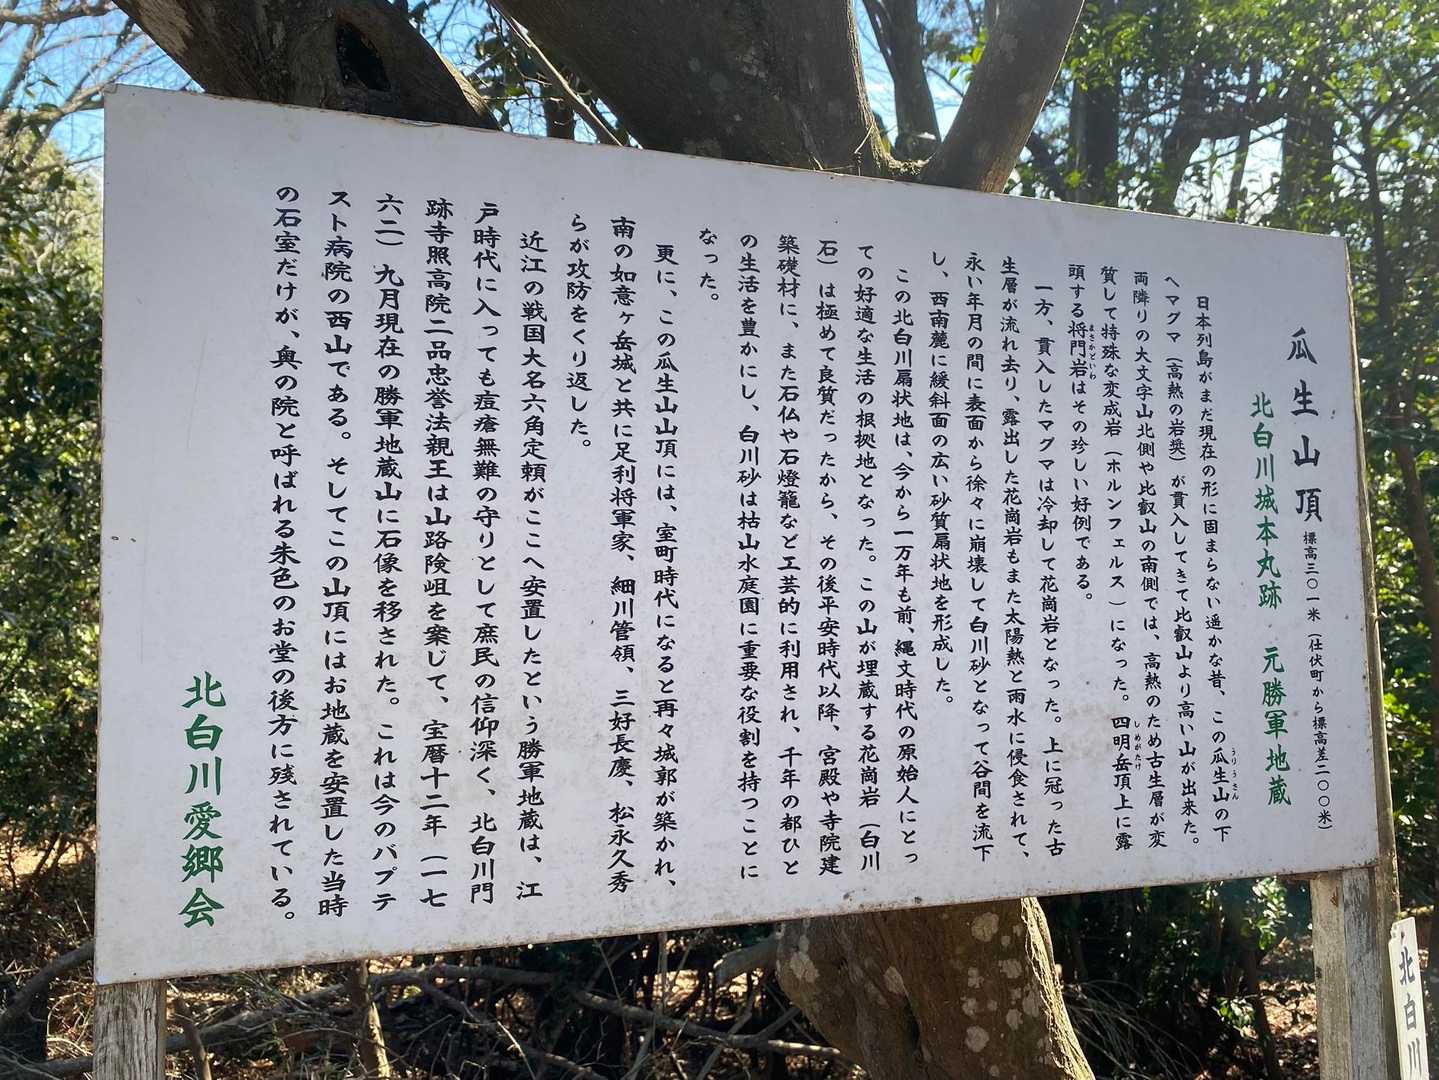 瓜生山頂 標高三〇一米(仕伏町から標高差二〇〇米)
北白川城本丸跡 元勝軍地蔵
日本列島がまだ現在の形に固まらない遥かな昔、この瓜生山の下
うりうさん
へマグマ(高熱の岩奬)が貫入してきて比叡山より高い山が出来た。
両隣りの大文字山北側や比叡山の南側では、高熱のため古生層が変
質して特殊な変成岩(ホルンフェルス)になった。四明岳頂上に露
しめがたけ
頭する将門岩はその珍しい好例である。
まさかどいわ
一方、貫入したマグマは冷却して花崗岩となった。上に冠った古
生層が流れ去り、露出した花崗岩もまた太陽熱と雨水に侵食されて、
永い年月の間に表面から徐々に崩壊して白川砂となって谷間を流下
し、西南麓に緩斜面の広い砂質扇状地を形成した。
この北白川扇状地は、今から一万年も前、縄文時代の原始人にとっ
ての好適な生活の根拠地となった。この山が埋蔵する花崗岩(白川
石)は極めて良質だったから、その後平安時代以降、宮殿や寺院建
築礎材に、また石仏や石燈籠など工芸的に利用され、千年の都ひと
の生活を豊かにし、白川砂は枯山水庭園に重要な役割を持つことに
なった。
更に、この瓜生山山頂には、室町時代になると再々城郭が築かれ、
南の如意ヶ岳城と共に足利将軍家、細川管領、三好長慶、松永久秀
らが攻防をくり返した。
近江の戦国大名六角定頼がここへ安置したという勝軍地蔵は、江
戸時代に入っても痘瘡無難の守りとして庶民の信仰深く、北白川門
跡寺照高院二品忠誉法親王は山路険岨を案じて、宝暦十二年(一七
六二)九月現在の勝軍地蔵山に石像を移された。これは今のバプテ
スト病院の西山である。そしてこの山頂にはお地蔵を安置した当時
の石室だけが、奥の院と呼ばれる朱色のお堂の後方に残されている。
北白川愛郷会
北白川